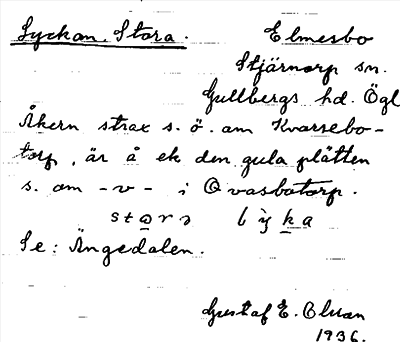 Lyckan. Stora. Elmesbo
Stjärnorp sn.
Gullbergs hd. Ögl
Åkern strax s. ö. om Kvarsebo-
torp, är å ek den gula plätten
s. om -v- i Qvasbotorp.
Se: Ängedalen.
Gustaf E. Olsson
1936.